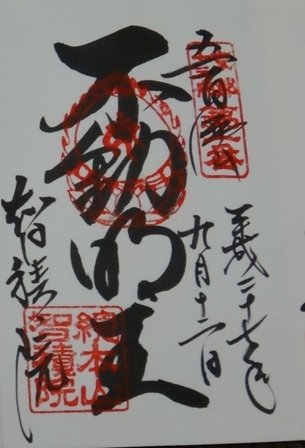 五百佛山
不動明王
智積院
平成二十七年
九月十二日
総本山
智積院